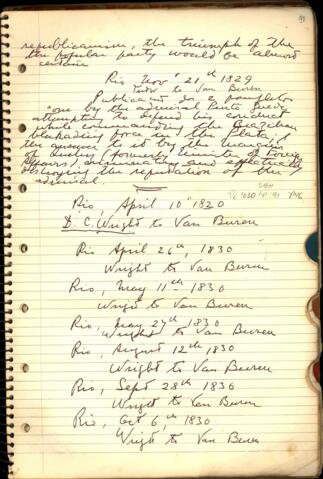 91
republicanism, the triumph of the
the popular party would be almost
certain
Rio Nov 21st 1829
Tudor to Van Buren
Publication in a translation
"one by the admiral Pinto Guedes
attempting to defend his conduct
while commanding the Brazilian
blockading force in the Plata;
the answer to it by the marquis
of formerly minister of Foreign
affairs and
destroying the reputation of the
admiral.
Rio, April 10th 1820
D. C. Wright to Van Buren
Rio April 26th, 1830
Wright to Van Buren
Rio, May 11th 1830
Wright to Van Buren
Rio, May 27th 1830
Wright to Van Buren
Rio, August 12th 1830
Wright to Van Buren
Rio, Sept 28th 1830
Wright to Van Buren
Rio, Oct 6th, 1830
Wright to Van Buren